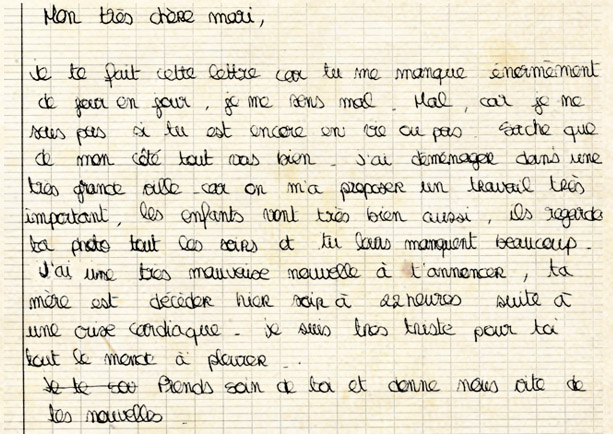 Mon très chère mari,
Je te fait cette lettre car tu me manque énormément
de jour en jour, je me sens mal. Mal, car je me
sais pas si tu est encore en vie ou pas. Sache que
de mon côté tout vas bien. J'ai demenager dans une
très grande ville car on m'a proposer un travail très
important, les enfants vont très bien aussi, ils regarde
ta photo tout les soirs et tu leurs manquent beaucoup.
J'ai une tres mauvaise nouvelle à t'annoncer, ta
mère est décéder hier soir à 22 heures suite à
une crise cardiaque. Je suis tres triste pour toi
tout le monde à pleurer...
Je te sou Prends soin de toi et donne nous vite de
tes nouvelles.